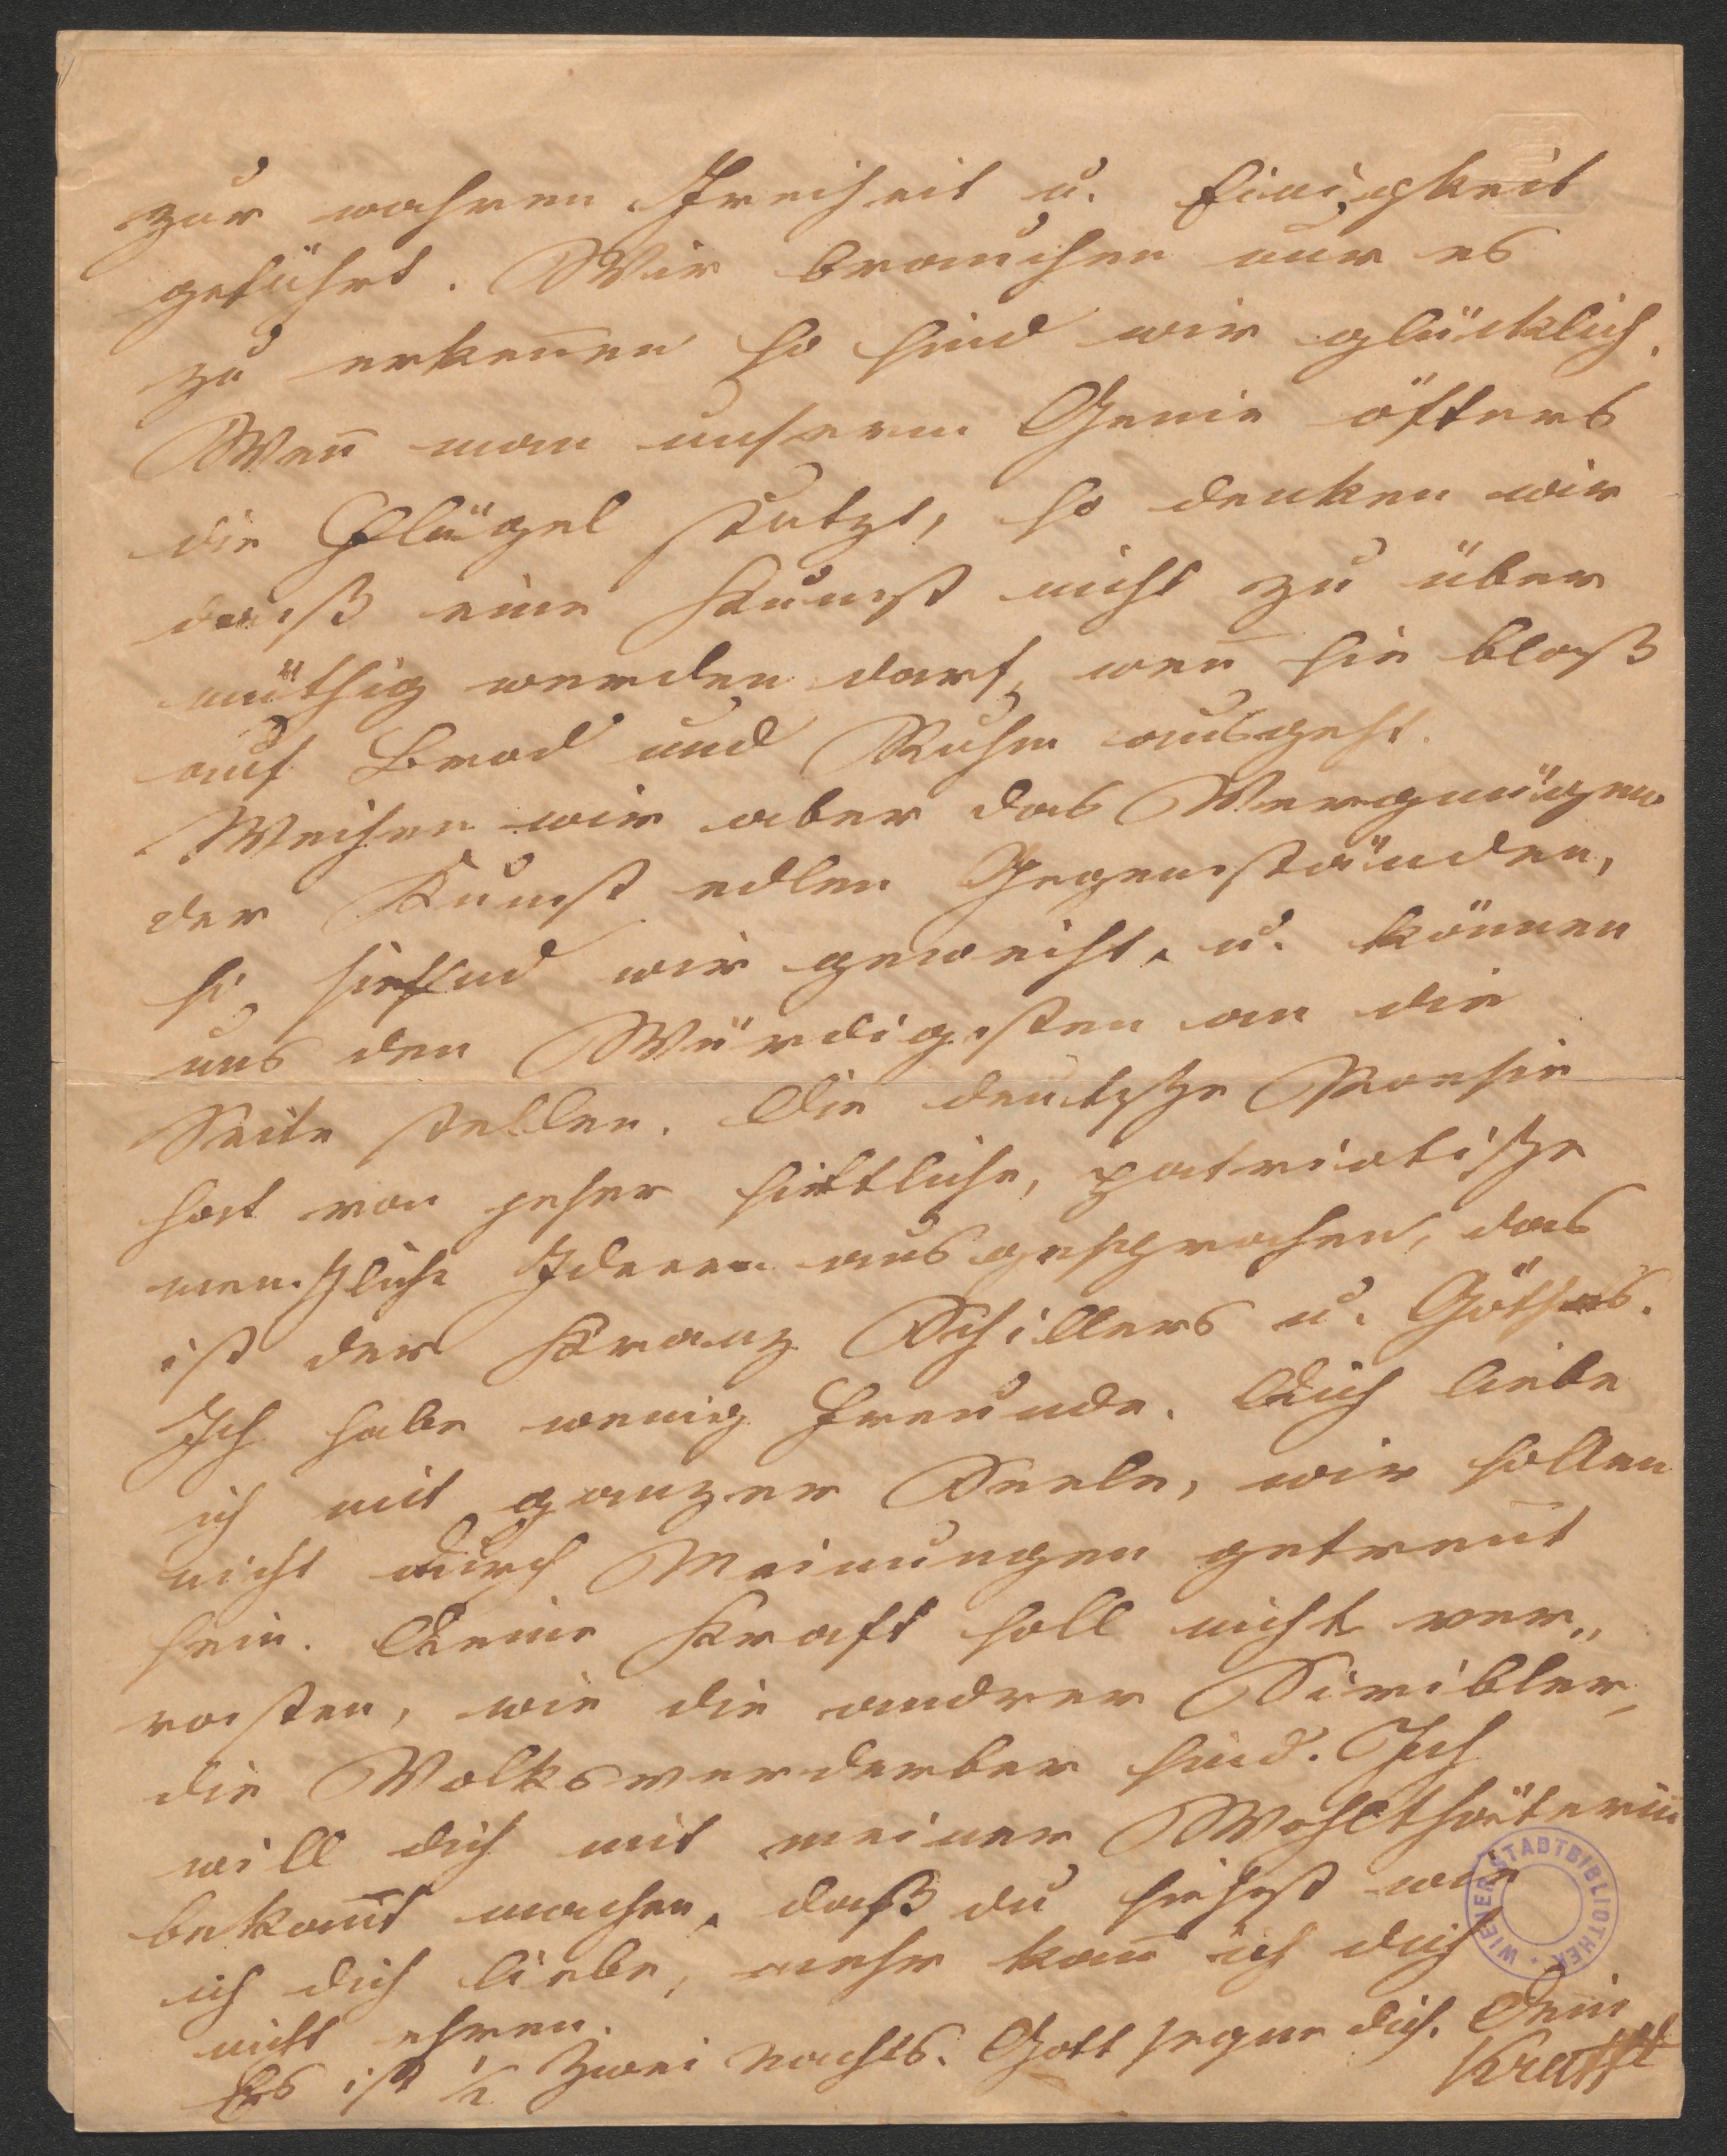 zur wahren Freiheit u. Einigkeit
geführt. Wir brauchen nur es
zu erkeñen so sind wir glücklich.
Weñ man unserm Genie öfters
die Flügel stutzt, so denken wir
daß eine Kunst nicht zu über
müthig werden darf, weñ sie bloß
auf Brod und Ruhm ausgeht.
Weihen wir aber das Vergnügen
der Kunst edlen Gegenständen,
so sind wir geweiht, u. können
uns den Würdigsten an die
Seite stellen. Die deutsche Poesie
hat von jeher sittliche, patriotische
menschliche Ideen ausgesprochen, das
ist der Kranz Schillers u. Göthes.
Ich habe wenig Freunde. Dich liebe
ich mit ganzer Seele, wir sollen
nicht durch Meinungen getreñt
sein. Deine Kraft soll nicht ver„
rosten, wie die andrer Scribler,
die Volksverderber sind. Ich
will dich mit meiner Wohlthäterin
bekañt machen, daß du siehst wie
ich dich liebe, mehr kañ ich dich
nicht ehren.
Es ist ½ Zwei Nachts. Gott segne dich. Dein
Krafft
WIENER STADTBIBLIOTHEK